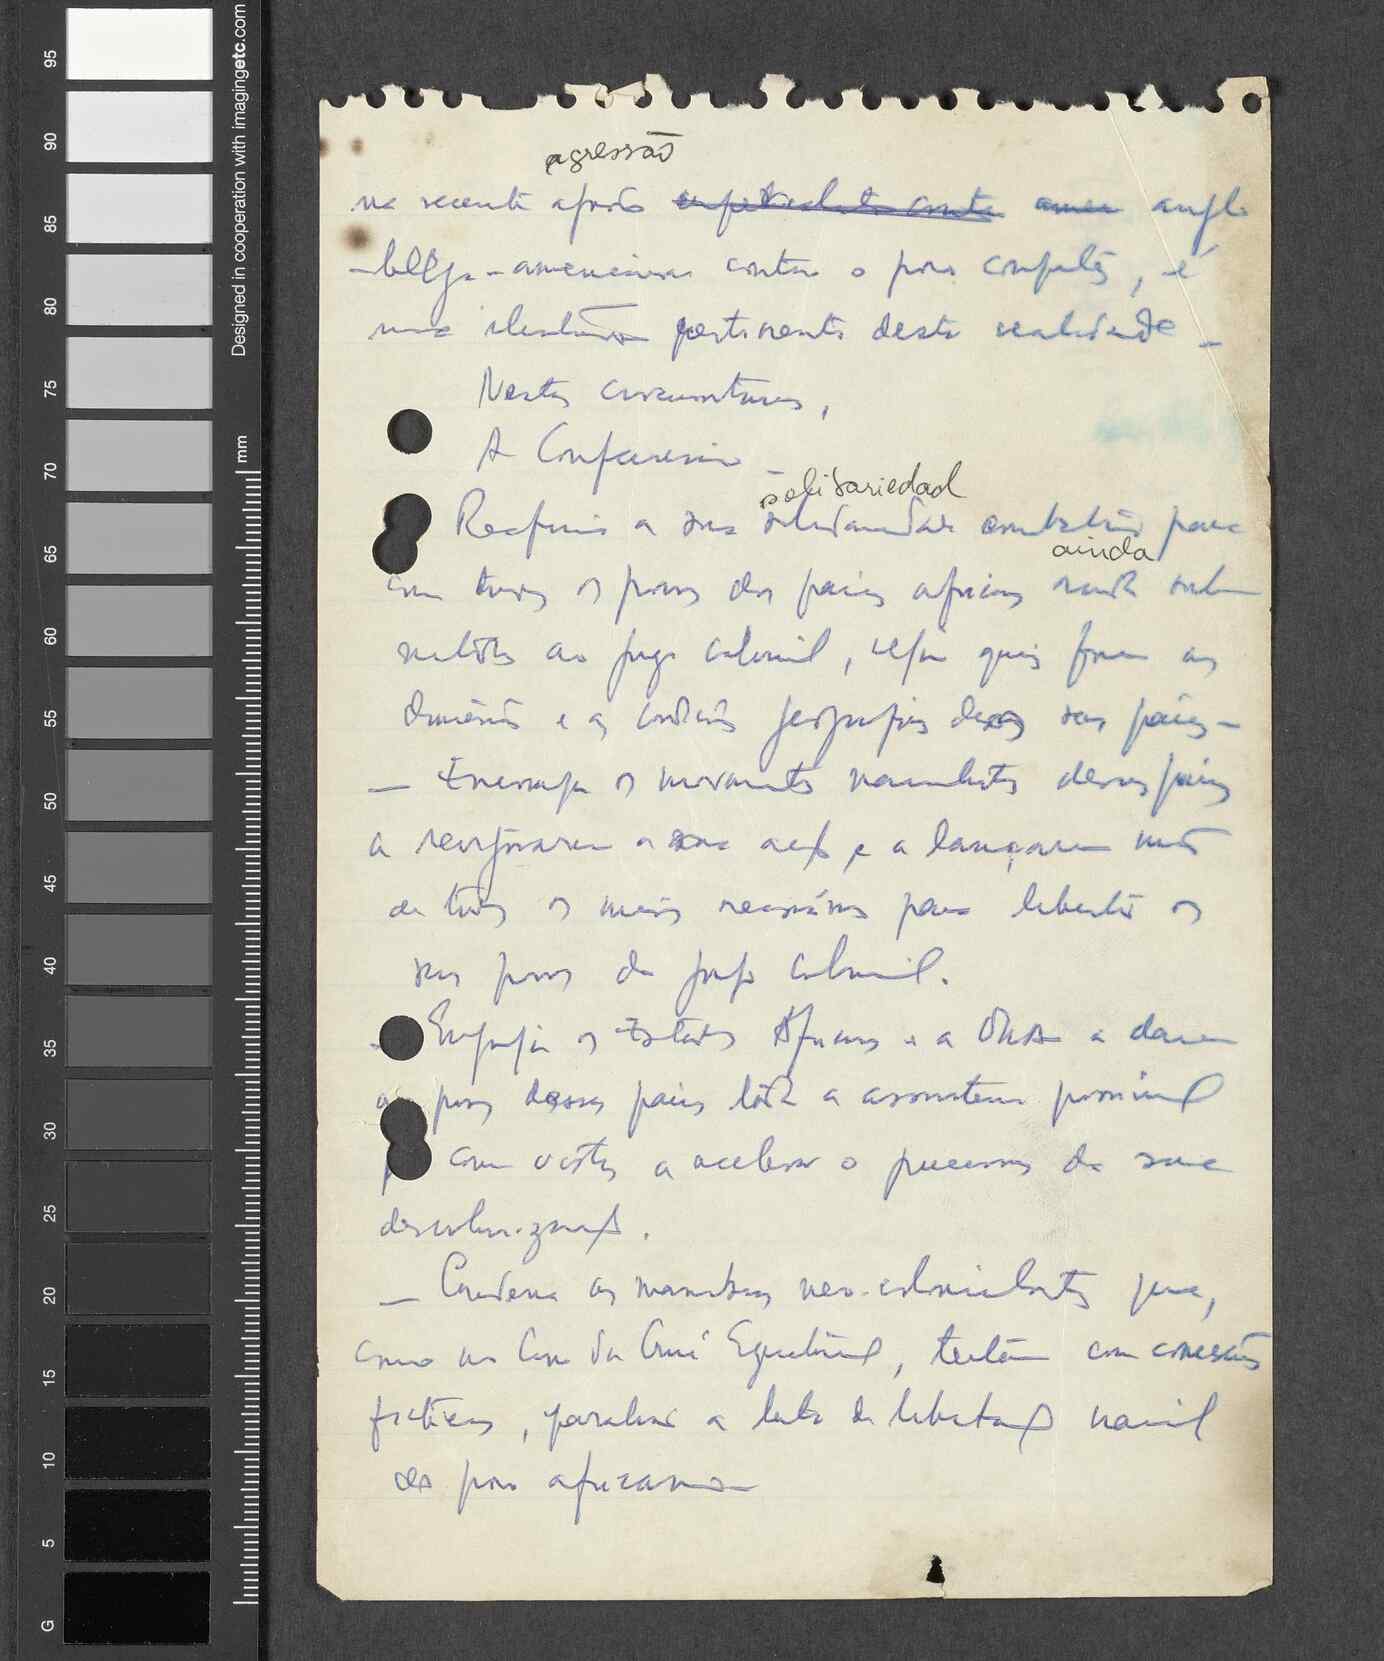 95
90
85
80
75
70
65
60
55
50
45
40
35
30
25
20
15
10
5
G
Designed in cooperation with imagingetc.com
mm
agressão
na recente agressão imperialista contra anglo
-belga-americana contra o povo congolês, é
uma ilustração pertinente desta realidade _
Nestas circunstâncias,
A Conferência _
solidariedad
Reafirma a sua solidariedade combatente para
ainda
com todos os povos dos países africanos ainda subme
tidos ao jugo colonial, sejam quais forem as
dimensões e as condições geográficas desses seus países _
_ Encoraja os movimentos nacionalistas desses países
a reforçarem a sua acção e a lançarem mão
de todos os meios necessários para libertar os
seus povos do jugo colonial.
os Estados Africanos e a OUA a darem
aos povos desses países toda a assistência possível
com vistas a acelerar o processo da sua
descolonização.
_ Condena as manobras neo-colonialistas que,
como no caso da Guiné Equatorial, tentam com concessões
fictícias, paralisar a luta de libertação nacional
do povo africano